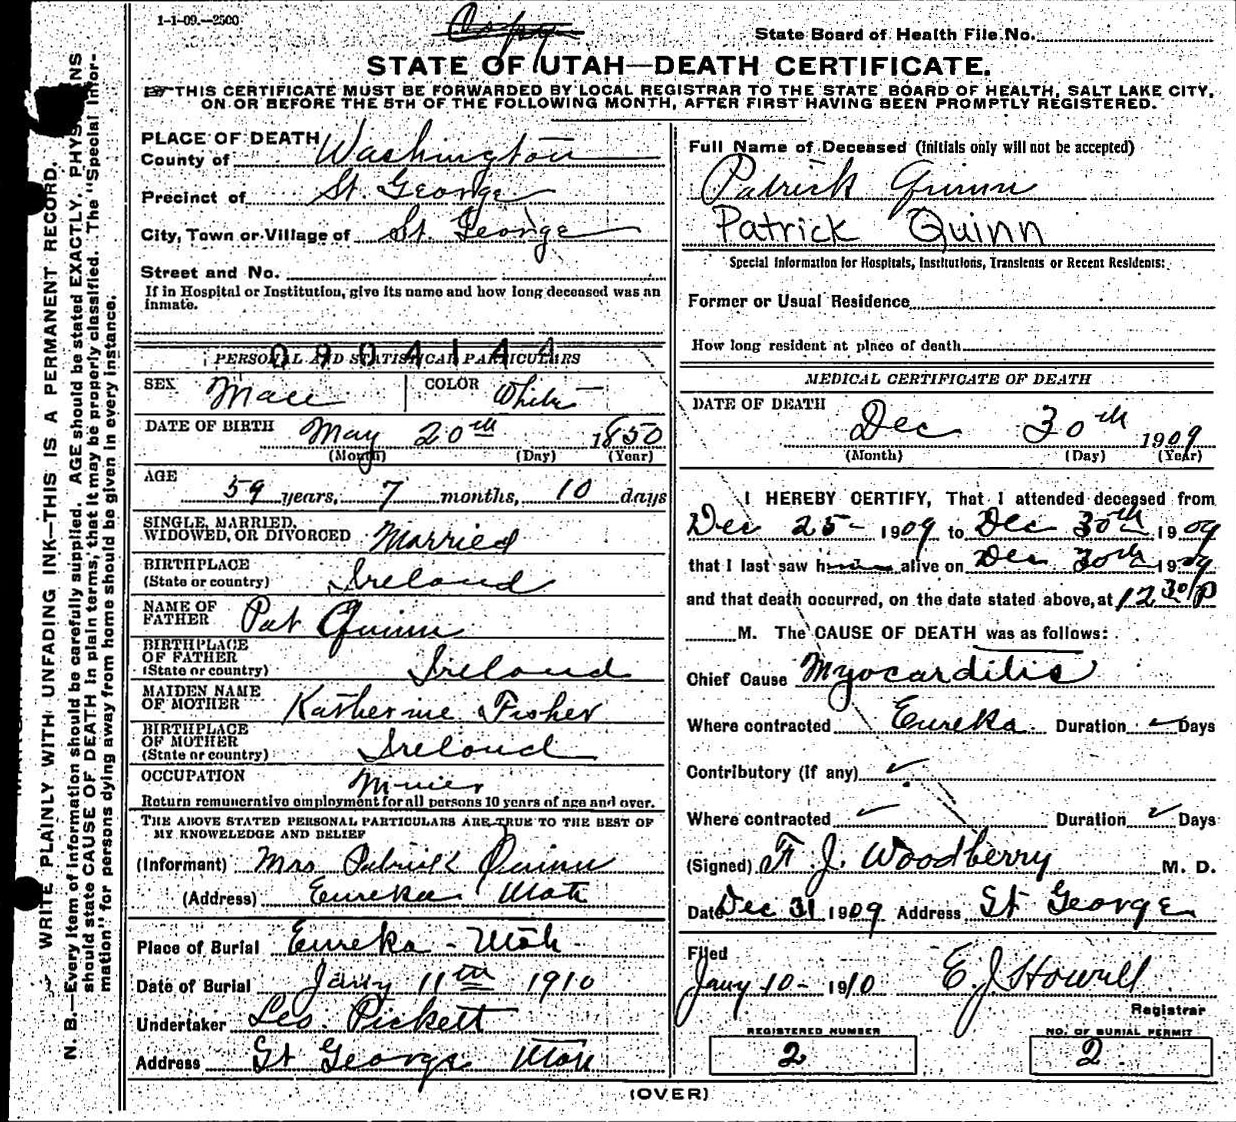 1-1-09.—2500
Copy
State Board of Health File No.
STATE OF UTAH—DEATH CERTIFICATE.
THIS CERTIFICATE MUST BE FORWARDED BY LOCAL REGISTRAR TO THE STATE BOARD OF HEALTH, SALT LAKE CITY,
ON OR BEFORE THE 5TH OF THE FOLLOWING MONTH, AFTER FIRST HAVING BEEN PROMPTLY REGISTERED.
PLACE OF DEATH
County of Washington
Precinct of St. George
City, Town or Village of St. George
Street and No.
If in Hospital or Institution, give its name and how long deceased was an
inmate.
0904144
PERSONAL AND STATISTICAL PARTICULARS
SEX Male COLOR White
DATE OF BIRTH May 20th 1850
(Month) (Day) (Year)
AGE
59 years, 7 months, 10 days
SINGLE, MARRIED,
WIDOWED, OR DIVORCED Married
BIRTHPLACE
(State or country) Ireland
NAME OF
FATHER Pat Quinn
BIRTHPLACE
OF FATHER
(State or country) Ireland
MAIDEN NAME
OF MOTHER Katherine Fisher
BIRTHPLACE
OF MOTHER
(State or country) Ireland
OCCUPATION Miner
Return remunerative employment for all persons 10 years of age and over.
THE ABOVE STATED PERSONAL PARTICULARS ARE TRUE TO THE BEST OF
MY KNOWELEDGE AND BELIEF
(Informant) Mrs Patrick Quinn
(Address) Eureka Utah
Place of Burial Eureka - Utah
Date of Burial Jany 11th 1910
Undertaker Leo. Pickett
Address St George Utah
Full Name of Deceased (Initials only will not be accepted)
Patrick Quinn
Patrick Quinn
Special Information for Hospitals, Institutions, Transients or Recent Residents:
Former or Usual Residence
How long resident at place of death
MEDICAL CERTIFICATE OF DEATH
DATE OF DEATH
Dec 30th 1909
(Month) (Day) (Year)
I HEREBY CERTIFY, That I attended deceased from
Dec 25- 1909 to Dec 30th 1909
that I last saw him alive on Dec 30th 1909
and that death occurred, on the date stated above, at 12 30 P
M. The CAUSE OF DEATH was as follows:
Chief Cause Myocarditis
Where contracted Eureka Duration Days
Contributory (If any)
Where contracted Duration Days
(Signed) F. J. Woodberry M. D.
Date Dec 31 1909 Address St George
Filed
Jany 10- 1910 E. J. Howell
Registrar
REGISTERED NUMBER
2
NO. OF BURIAL PERMIT
2
(OVER)
WRITE PLAINLY WITH UNFADING INK—THIS IS A PERMANENT RECORD.
N. B.—Every item of information should be carefully supplied. AGE should be stated EXACTLY. PHYS NS
should state CAUSE OF DEATH in plain terms, that it may be properly classified. The "Special Infor-
mation" for persons dying away from home should be given in every instance.